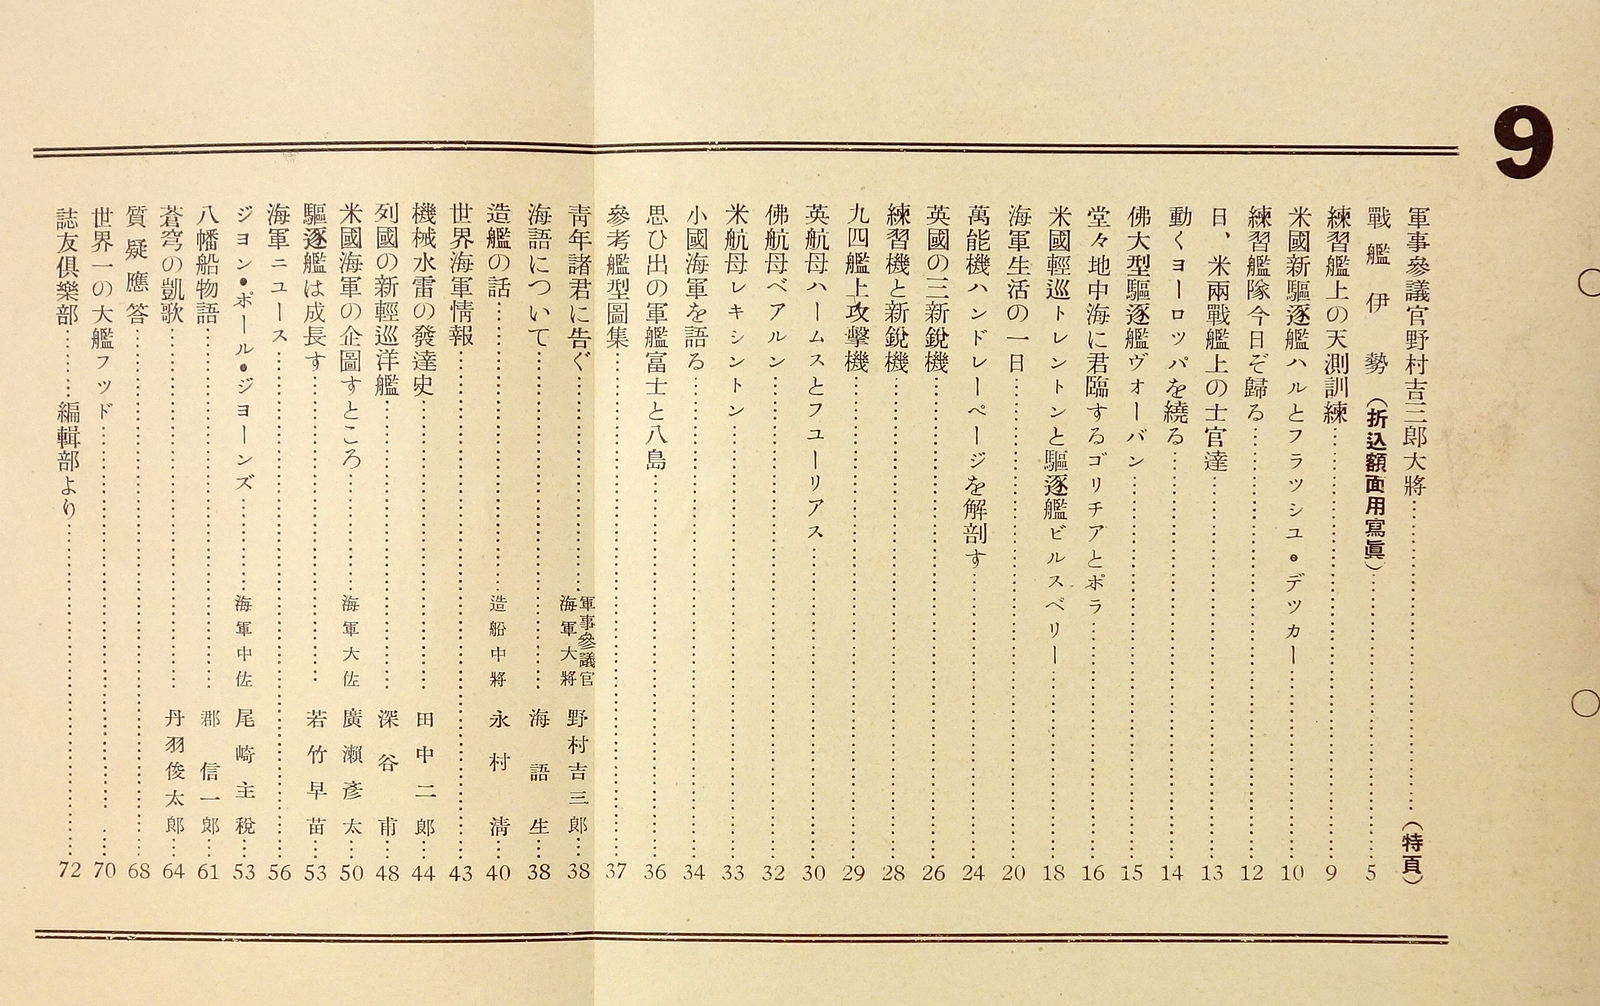 9
軍事參議官野村吉三郎大將……(特頁)
戰艦伊勢(折込額面用寫眞)……5
練習艦上の天測訓練……9
米國新驅逐艦ハルとフラツシユ・デツカー……10
練習艦隊今日ぞ歸る……12
日、米兩戰艦上の士官達……13
動くヨーロッパを繞る……14
佛大型驅逐艦ヴォーバン……15
堂々地中海に君臨するゴリチアとポラ……16
米國輕巡トレントンと驅逐艦ビルスベリー……18
海軍生活の一日……20
萬能機ハンドレーページを解剖す……24
英國の三新銳機……26
練習機と新銳機……28
九四艦上攻擊機……29
英航母ハームスとフユーリアス……30
佛航母ベアルン……32
米航母レキシントン……33
小國海軍を語る……34
思ひ出の軍艦富士と八島……36
參考艦型圖集……37
靑年諸君に告ぐ……軍事參議官海軍大將 野村吉三郎……38
海語について……海語生……38
造艦の話……造船中將 永村淸……40
世界海軍情報……43
機械水雷の發達史……田中二郎……44
列國の新輕巡洋艦……深谷甫……48
米國海軍の企圖すところ……海軍大佐 廣瀨彥太……50
驅逐艦は成長す……若竹早苗……53
海軍ニユース……56
ジヨン・ポール・ジヨーンズ……海軍中佐 尾崎主稅……53
八幡船物語……郡信一郎……61
蒼穹の凱歌……丹羽俊太郎……64
質疑應答……68
世界一の大艦フッド……70
誌友俱樂部……編輯部より……72